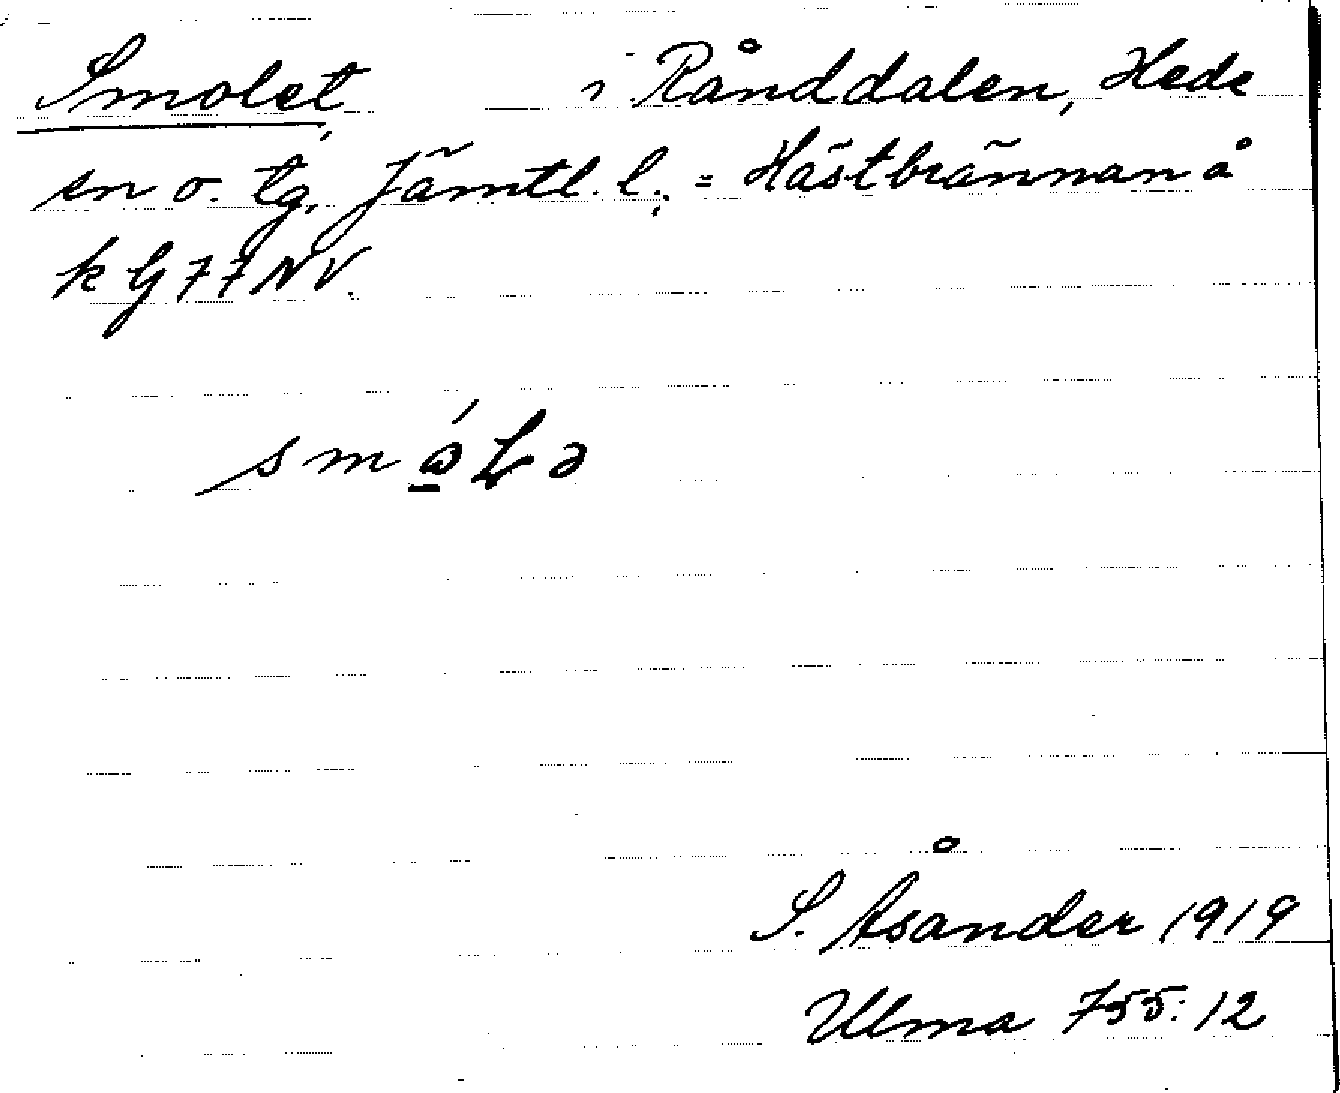 Smolet, i Rånddalen, Hede
sn o. tg, Jämtl. l.; = Hästbrännan å
k G 77 NV.
S. Åsander 1919
Ulma 755:12